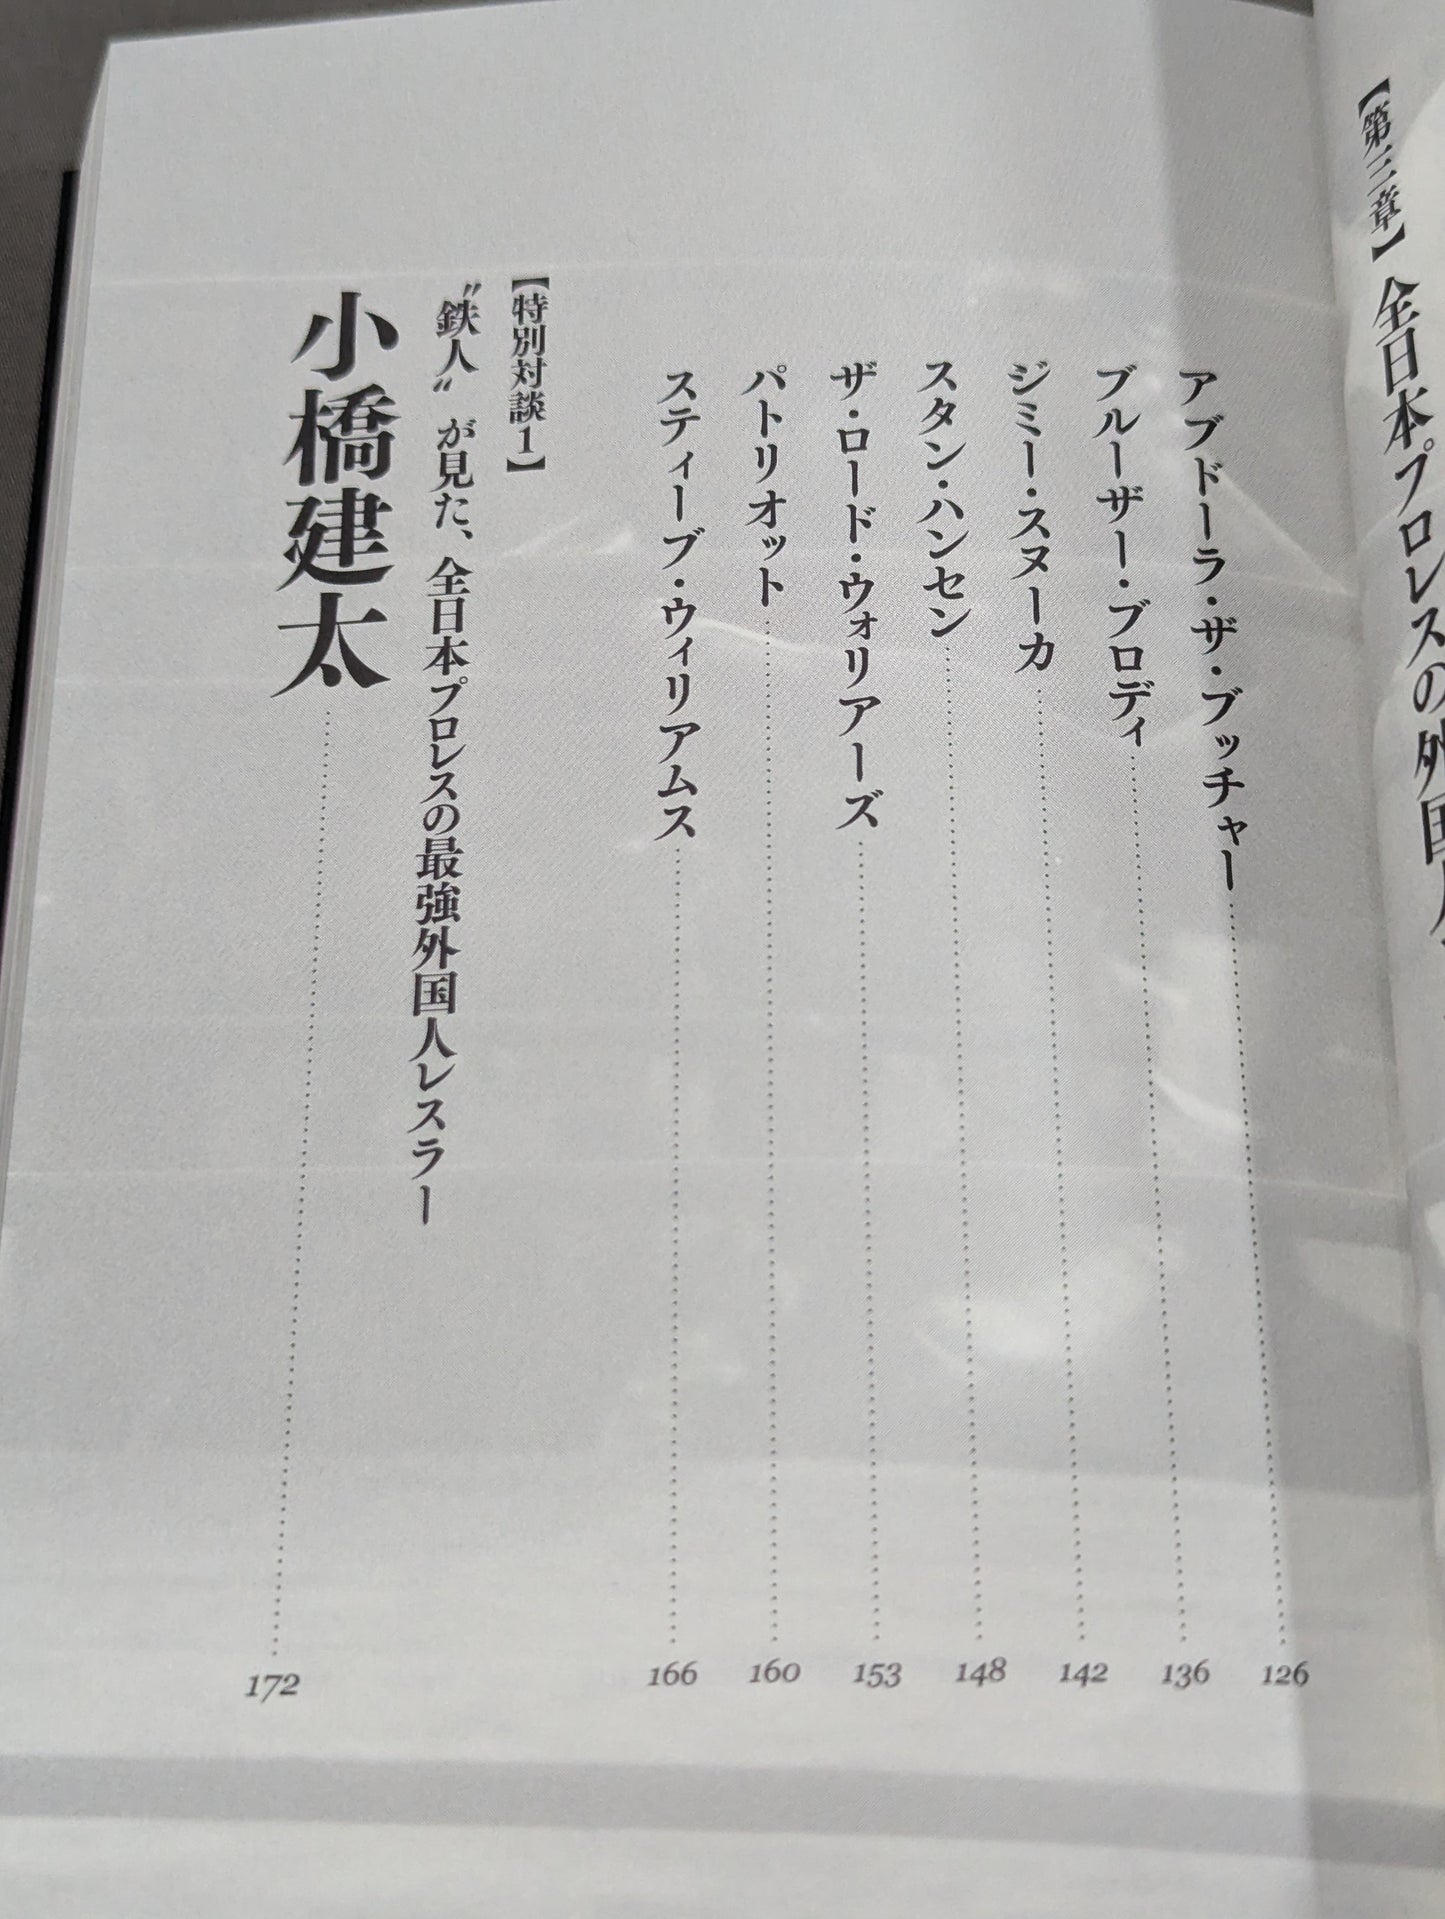 【第三章】全日本プロレスの外国人
アブドーラ・ザ・ブッチャー 126
ブルーザー・ブロディ 136
ジミー・スヌーカ 142
スタン・ハンセン 148
ザ・ロード・ウォリアーズ 153
パトリオット 160
スティーブ・ウィリアムス 166
【特別対談1】
〝鉄人〟が見た、全日本プロレスの最強外国人レスラー
小橋建太 172